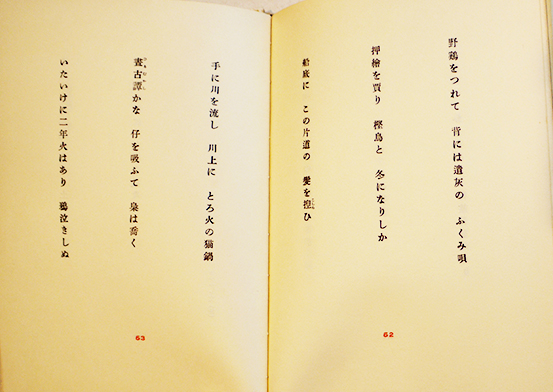 野鶏をつれて 背には遺灰の ふくみ唄
押檜を買り 樫鳥と 冬になりしか
船底に この片道の 髪を捏ひ
62
手に川を流し 川上に とろ火の猫鍋
古譚かな 仔を吸ふて 梟は喬く
いたいけに二年火はあり 鴉泣きしぬ
63